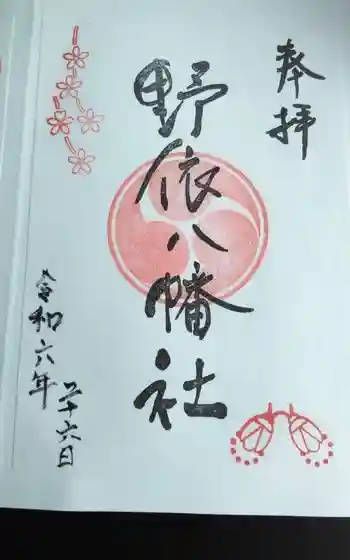 奉拝
野依八幡社
令和六年
六日